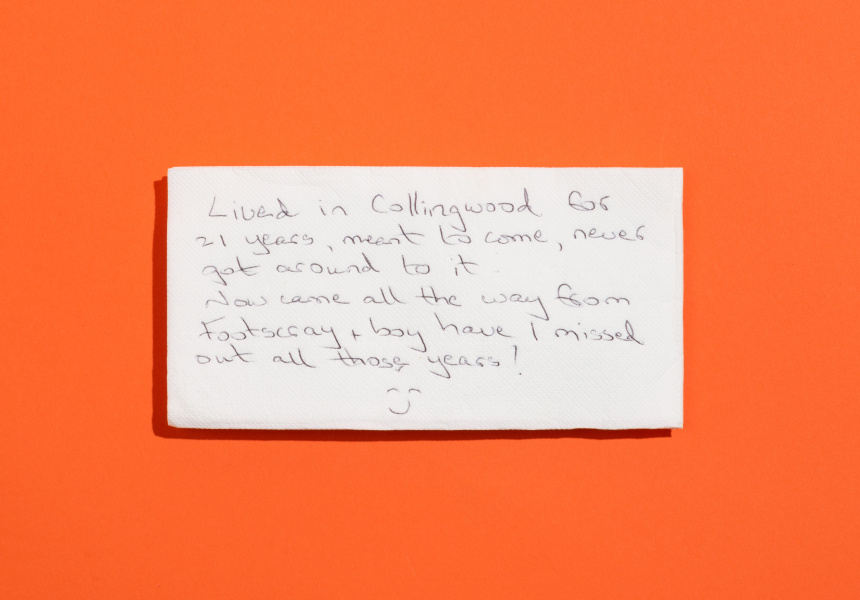 Lived in Collingwood for
21 years, meant to come, never
got around to it.
Now came all the way from
Footscray + boy have I missed
out all those years!